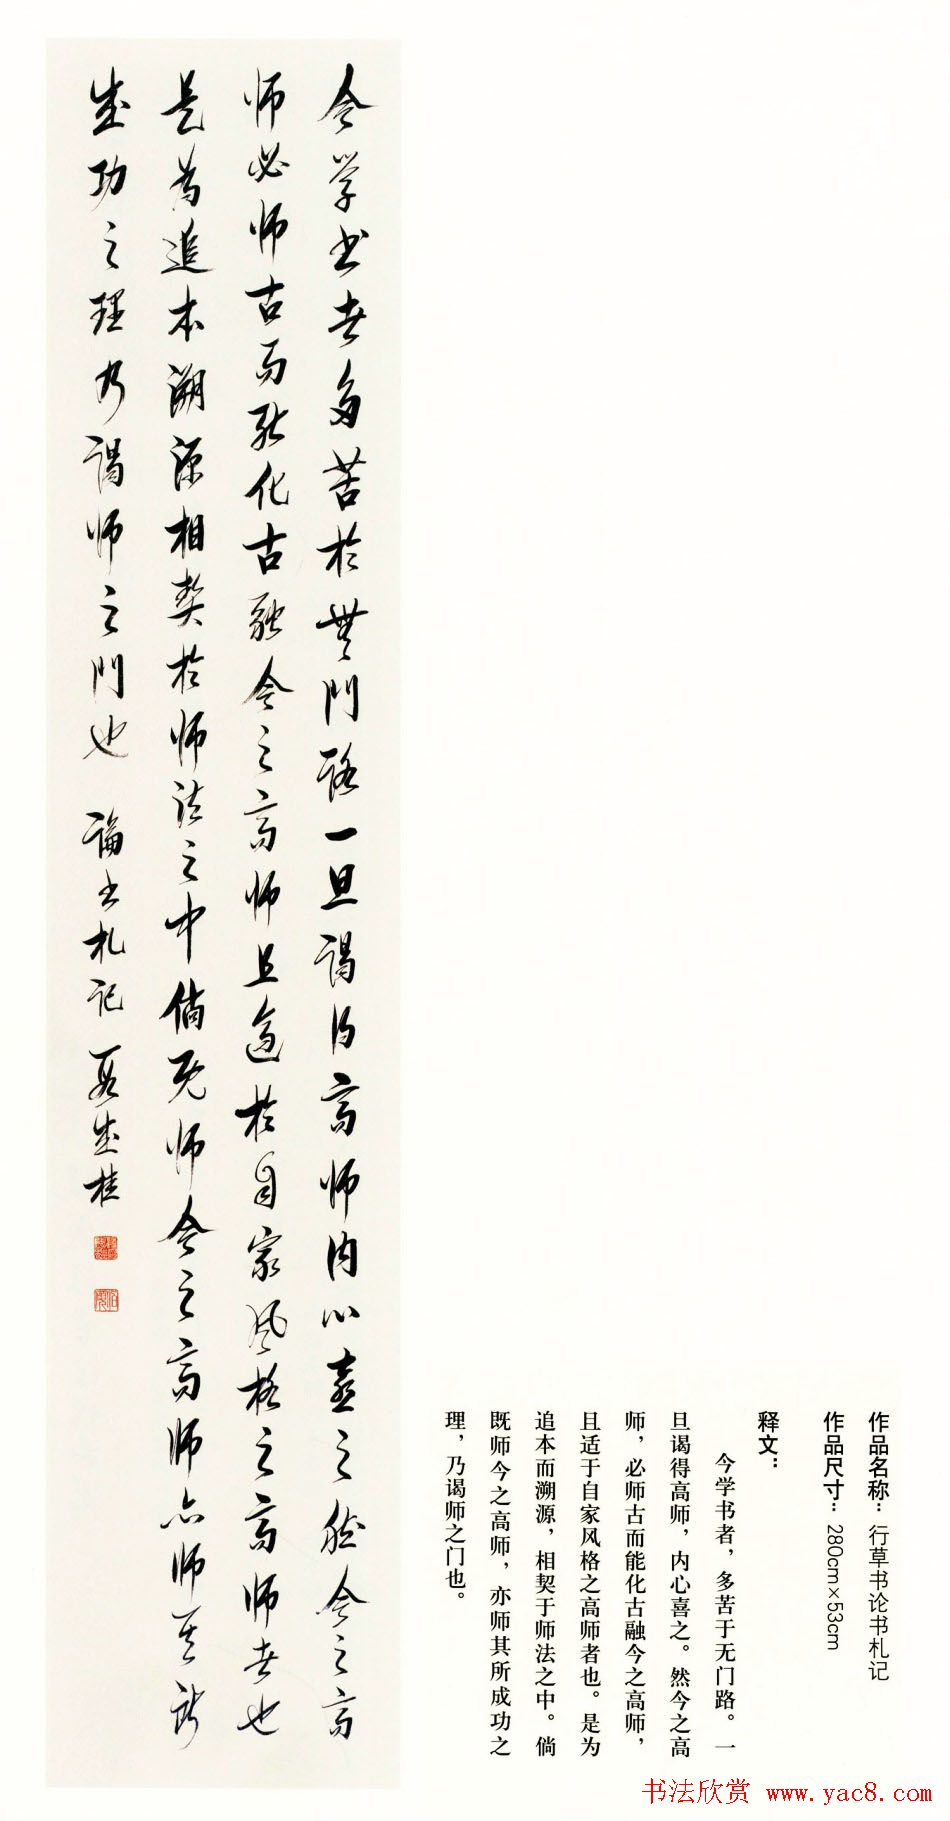 今学书者多苦於無門路一旦谒得高师内心喜之然今之高
师必师古而能化古融今之高师且适於自家风格之高师者也
是为追本溯源相契於师法之中倘既师今之高师亦师其所
成功之理乃谒师之門也 論书札记 夏成桂
作品名称：行草书论书札记
作品尺寸：280cm×53cm
释文：
今学书者，多苦于无门路。一
旦谒得高师，内心喜之。然今之高
师，必师古而能化古融今之高师，
且适于自家风格之高师者也。是为
追本而溯源，相契于师法之中。倘
既师今之高师，亦师其所成功之
理，乃谒师之门也。
书法欣赏 www.yac8.com